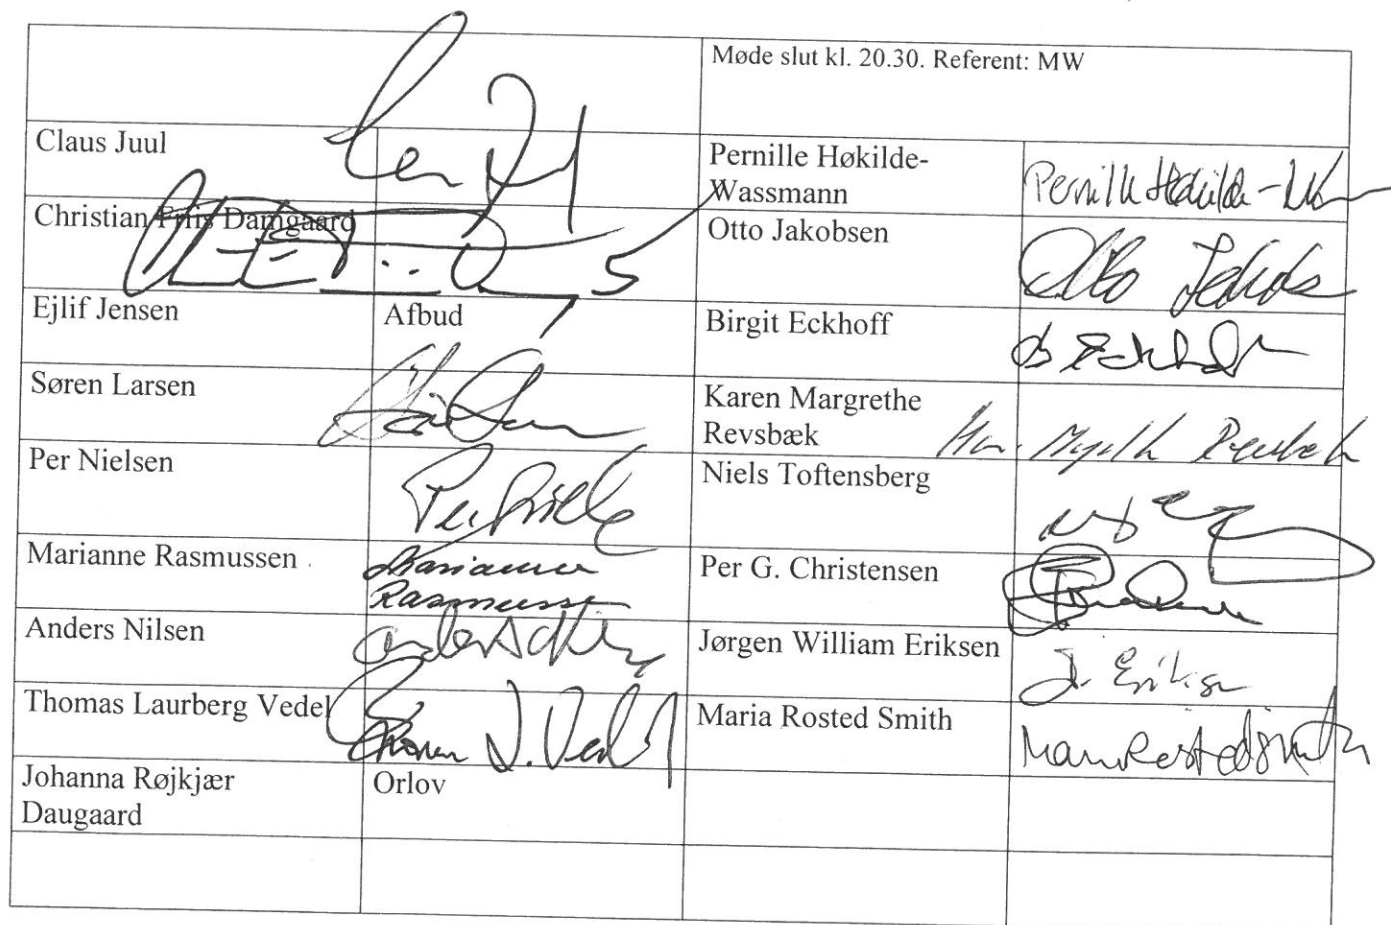 Møde slut kl. 20.30. Referent: MW
Claus Juul
Pernille Høkilde-
Wassmann
Pernille Høkilde-
Christian Friis Damgaard
Otto Jakobsen
Otto Jakobs
Ejlif Jensen
Afbud
Birgit Eckhoff
B Eckhoff
Søren Larsen
Karen Margrethe
Revsbæk
Per Nielsen
Niels Toftensberg
Marianne Rasmussen
Marianne
Rasmussen
Per G. Christensen
Anders Nilsen
Jørgen William Eriksen
J. Eriksen
Thomas Laurberg Vedel
Thomas L. Vedel
Maria Rosted Smith
Maria Rosted Smith
Johanna Røjkjær
Daugaard
Orlov